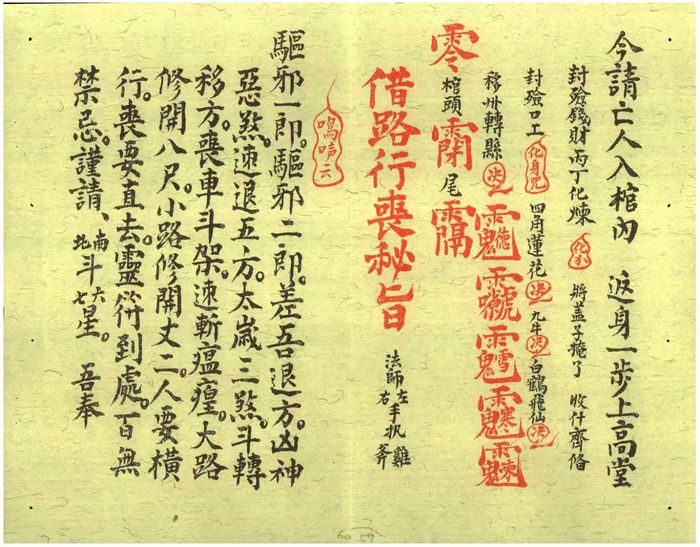 今請亡人入棺內 返身一步上高堂
封殮錢財丙丁化煉 化水 將蓋子掩了 收什齊俻
封殮口工 化身咒 四角蓮花 决 九牛 决 白鶴飛仙 决
移州轉縣 决
零 棺頭 尾
借路行喪秘旨 法師左手執雞右斧
鳴啼云
驅邪一郎。驅邪二郎。差吾退方。凶神
惡煞。速退五方。太歲三煞。斗轉
移方。喪車斗架。速斬瘟瘟。大路
修開八尺。小路修開丈二。人要橫
行。喪要直去。靈符到處。百無
禁忌。謹請、南斗六北斗七星。 吾奉
60 59